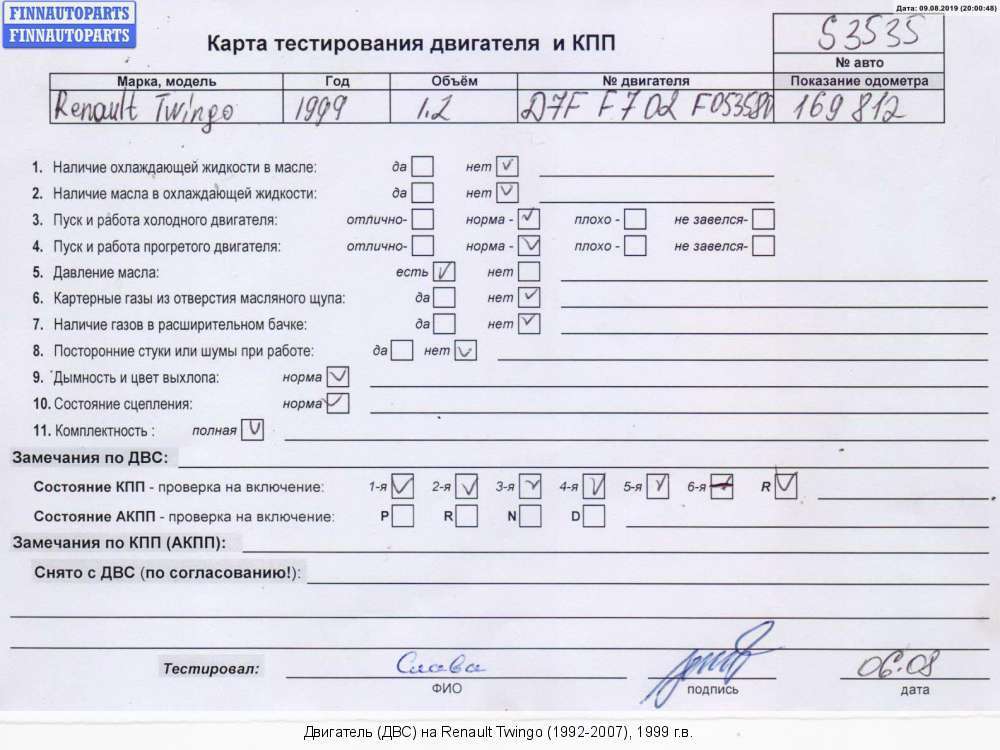 FINNAUTOPARTS
FINNAUTOPARTS
Дата: 09.08.2019 (20:00:48)
Карта тестирования двигателя и КПП
S3535
№ авто
Марка, модель Год Объём № двигателя Показание одометра
Renault Twingo 1999 1.2 D7F F702 F053580 169 812
1. Наличие охлаждающей жидкости в масле: да нет
2. Наличие масла в охлаждающей жидкости: да нет
3. Пуск и работа холодного двигателя: отлично- норма - плохо - не завелся-
4. Пуск и работа прогретого двигателя: отлично- норма - плохо - не завелся-
5. Давление масла: есть нет
6. Картерные газы из отверстия масляного щупа: да нет
7. Наличие газов в расширительном бачке: да нет
8. Посторонние стуки или шумы при работе: да нет
9. Дымность и цвет выхлопа: норма
10. Состояние сцепления: норма
11. Комплектность : полная
Замечания по ДВС:
Состояние КПП - проверка на включение: 1-я 2-я 3-я 4-я 5-я 6-я R
Состояние АКПП - проверка на включение: P R N D
Замечания по КПП (АКПП):
Снято с ДВС (по согласованию!):
Тестировал: Слава 06.08
ФИО подпись дата
Двигатель (ДВС) на Renault Twingo (1992-2007), 1999 г.в.